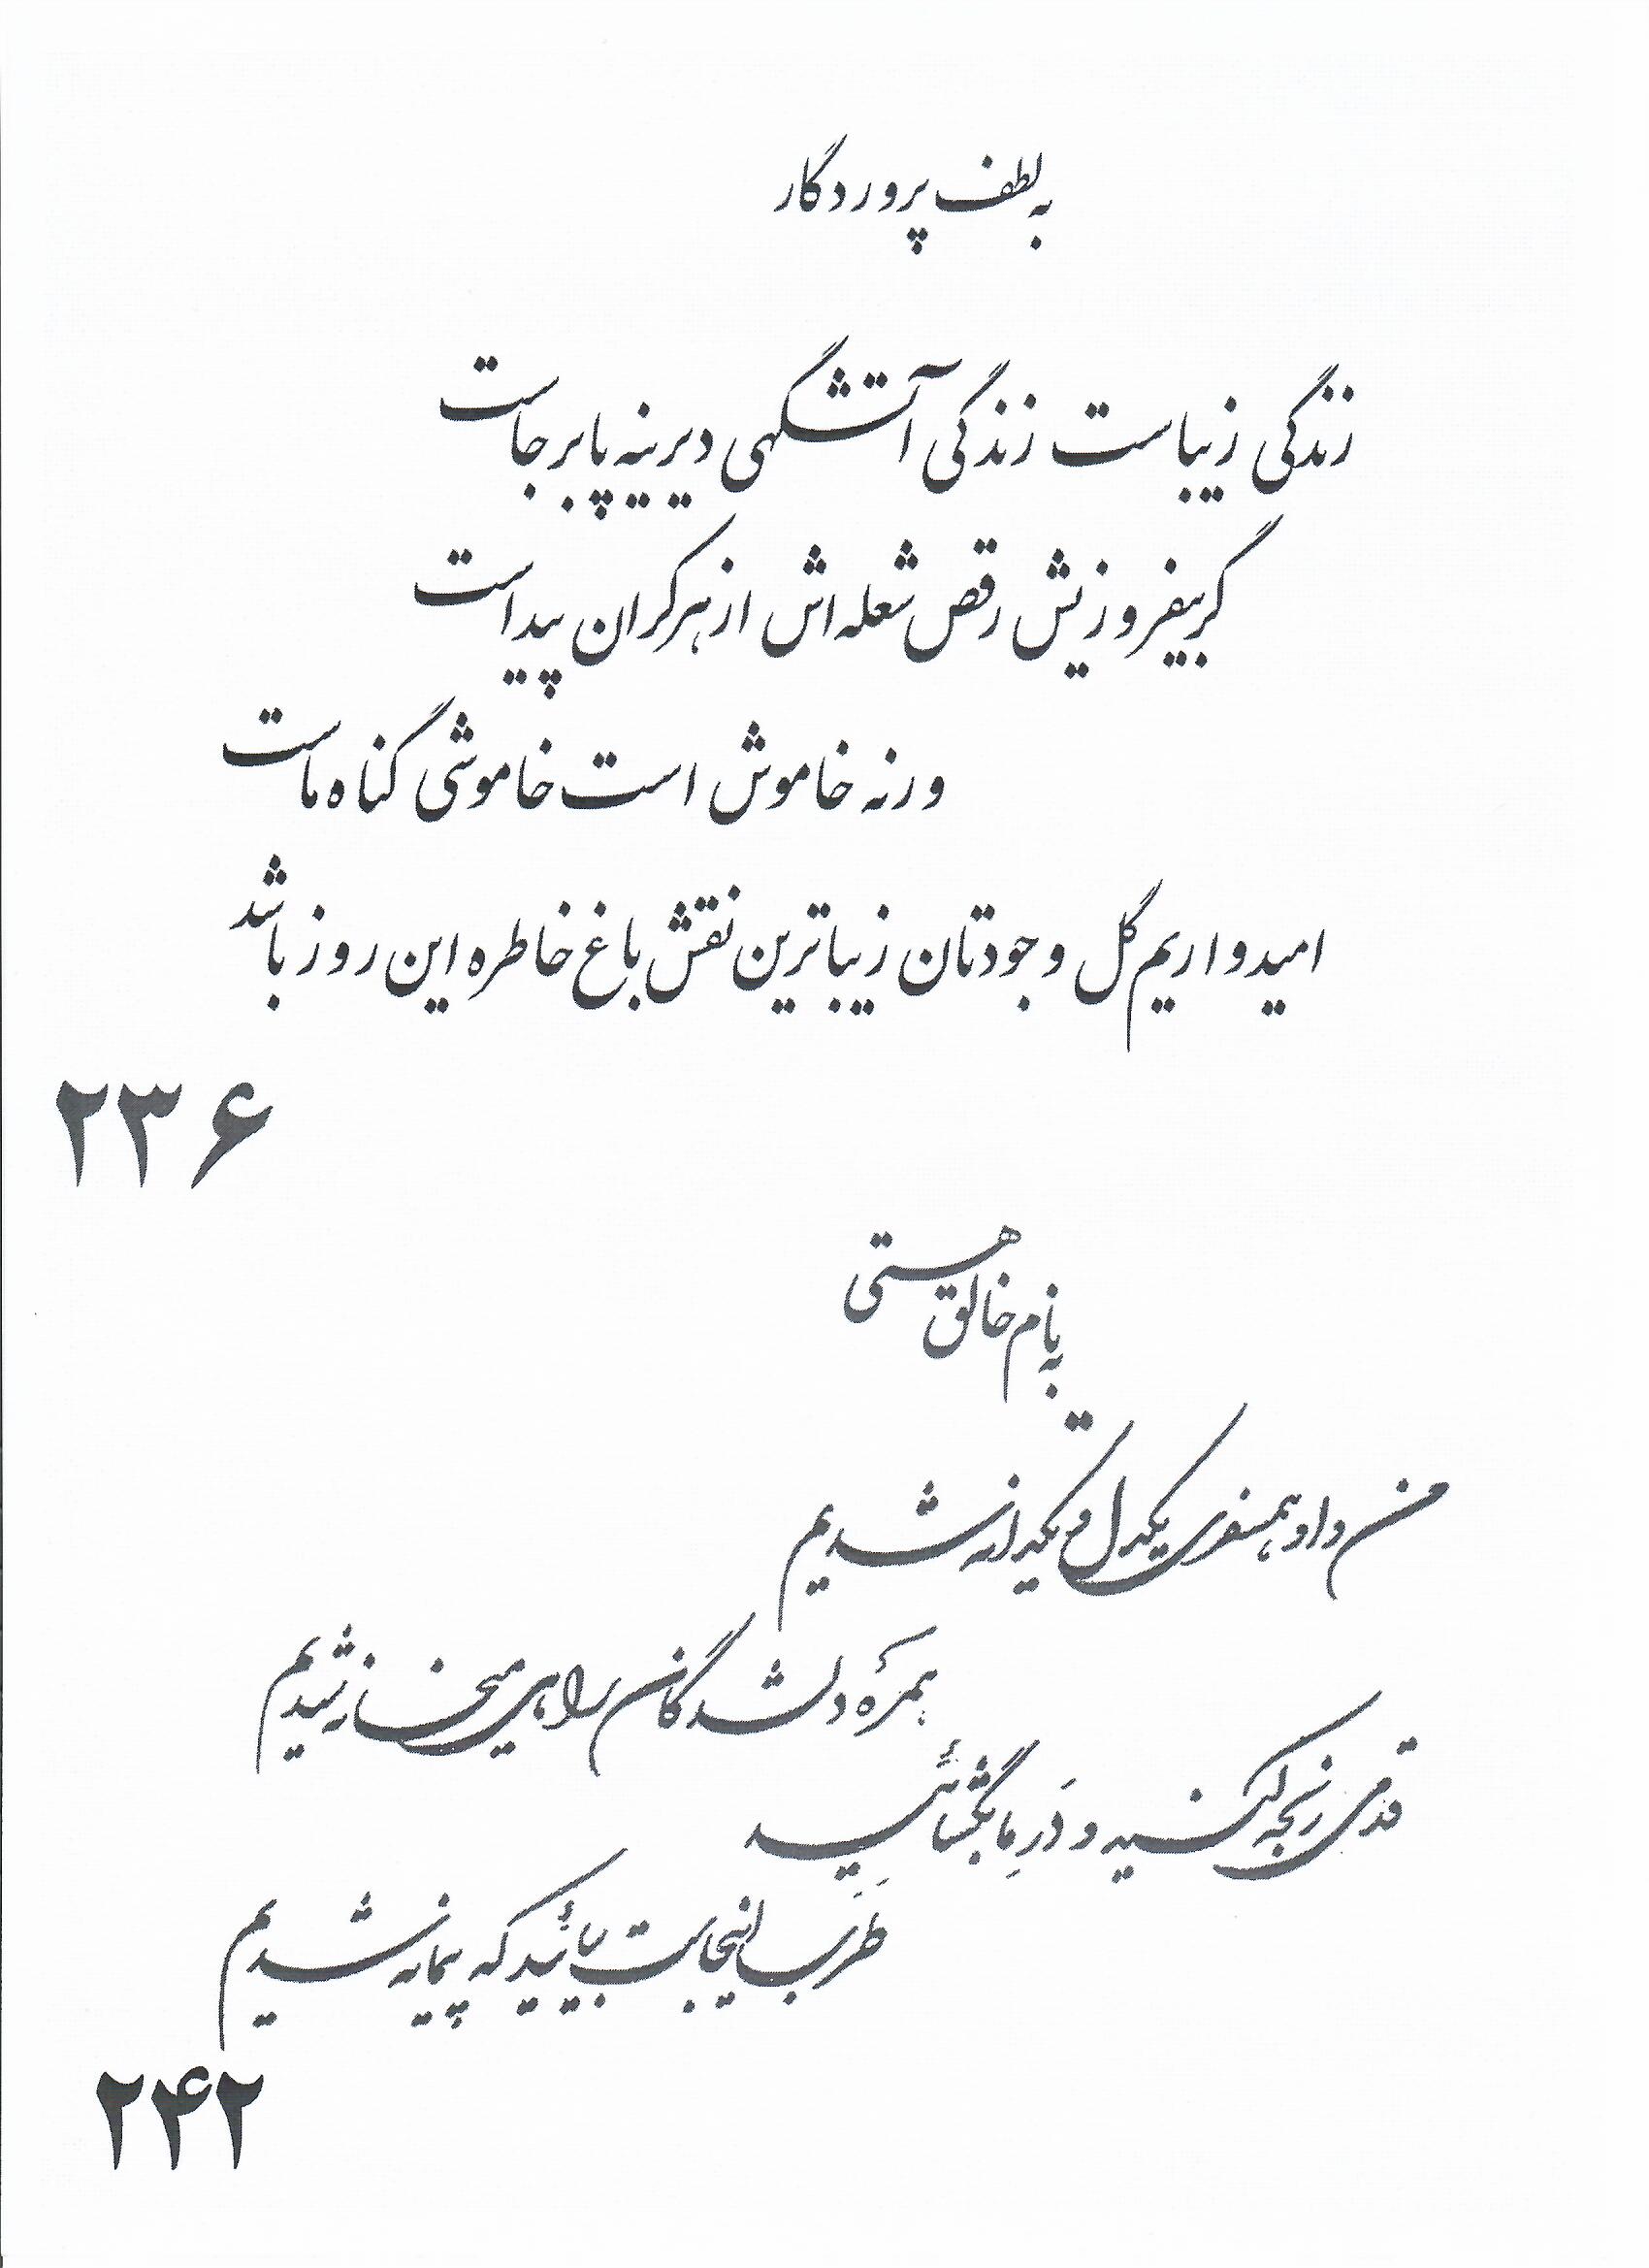 به لطف پروردگار
زندگی زیباست زندگی آتشگهی دیرینه پابرجاست
گر بیفروزیش رقص شعله اش از هر کران پیداست
ورنه خاموش است خاموشی گناه ماست
امیدواریم گل وجودتان زیباترین نقش باغ خاطره این روز باشد
۲۳۶
به نام خالق هستی
من و او همسفری یکدل و یکدانه شدیم
همره دلشدگان راهی میخانه شدیم
قدمی رنجه کنید و دَرِ ما بگشائید
طرب اینجاست بیائید که پیمانه شدیم
۲۴۲